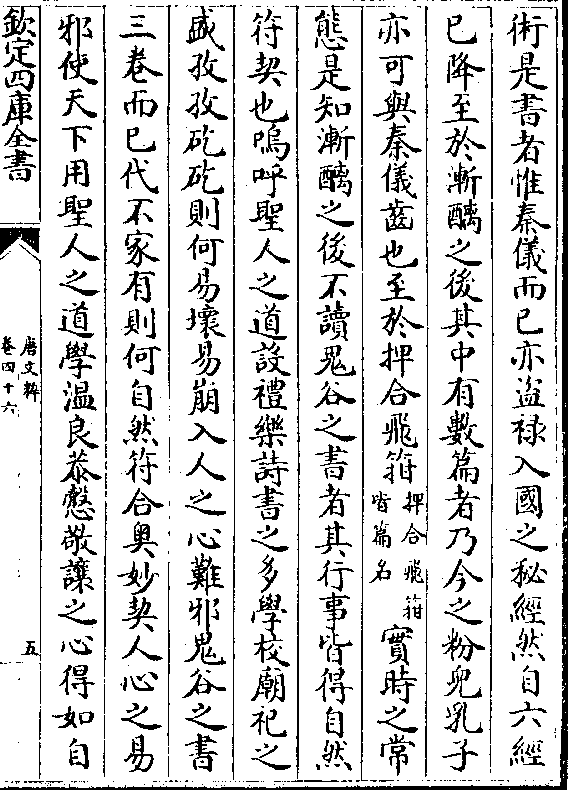 術是書者惟秦儀而已亦盗禄入國之秘經然自六經
已降至於漸醨之後其中有數篇者乃今之粉兒乳子
亦可與秦儀齒也至於捭合飛箝捭合飛箝皆篇名實時之常
態是知漸醨之後不讀鬼谷之書者其行事皆得自然
符契也嗚呼聖人之道設禮樂詩書之多學校廟祀之
盛孜孜矻矻則何易壞易崩入人之心難邪鬼谷之書
三卷而已代不家有則何自然符合奥妙契人心之易
邪使天下用聖人之道學温良恭慤敬讓之心得如自
欽定四庫全書
唐文粹
卷四十六
五